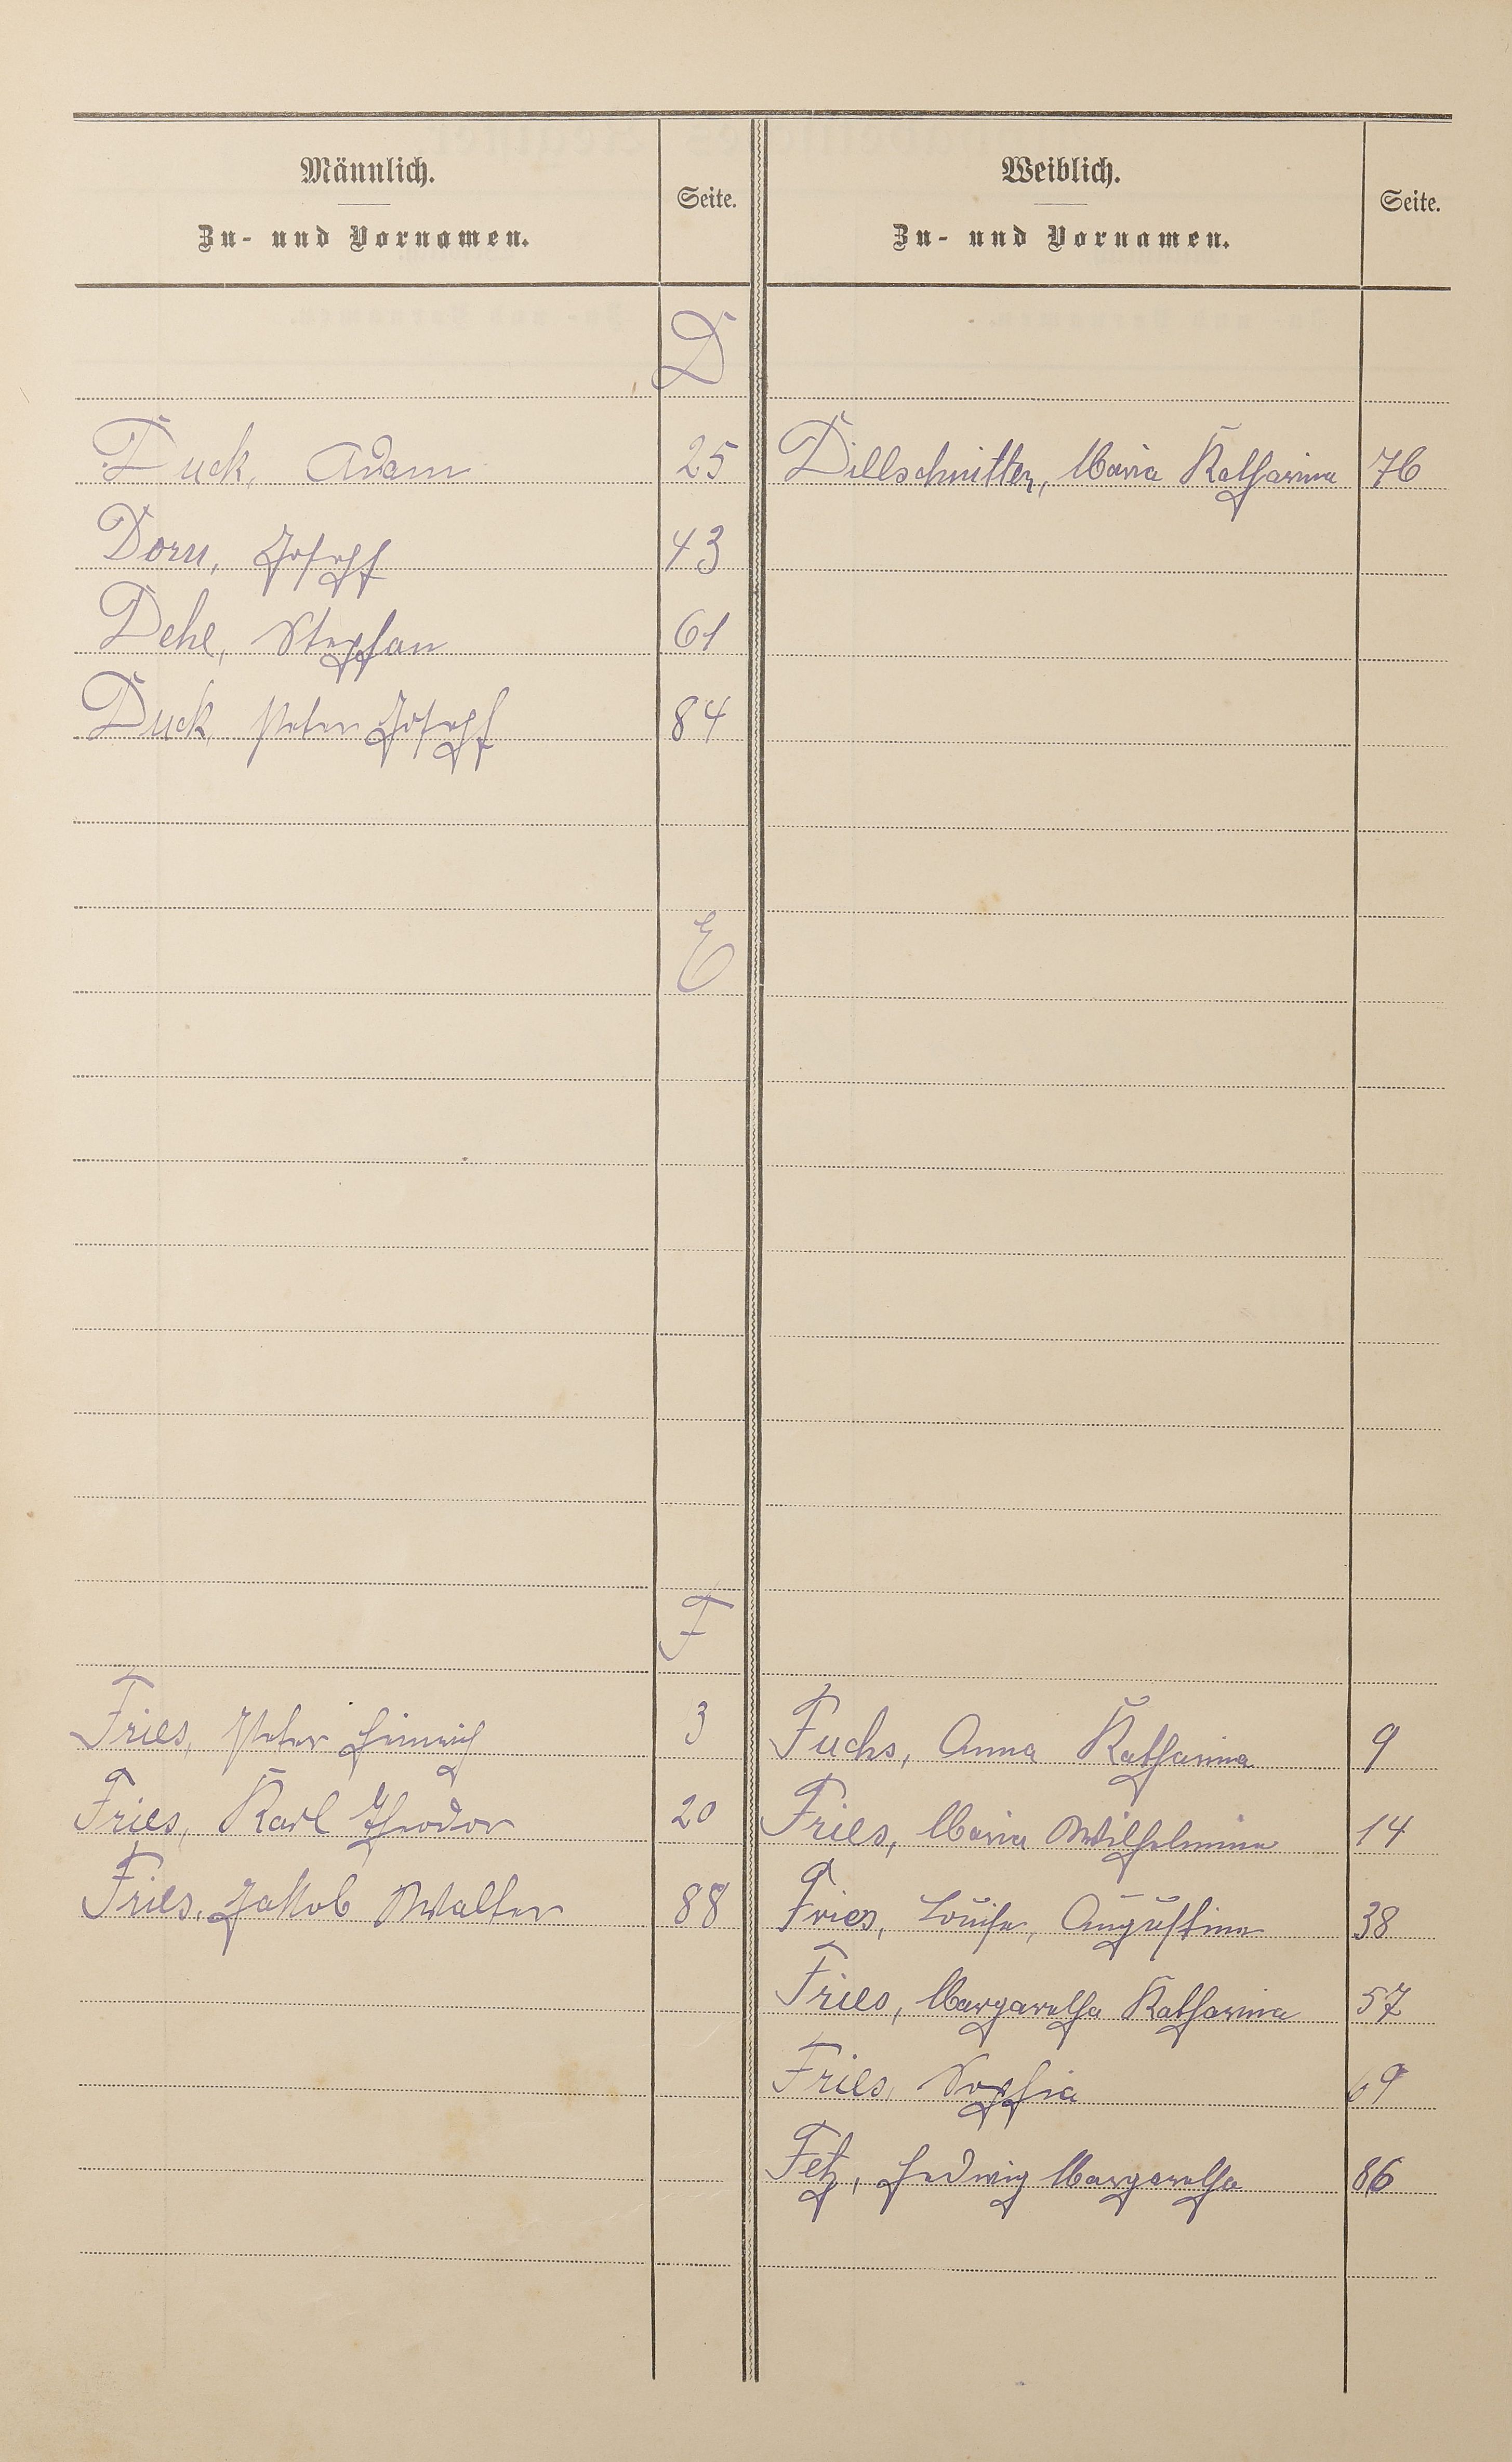 Männlich. Seite. Weiblich. Seite.
Zu- und Vornamen. Zu- und Vornamen.
D
Duck, Adam 25 Dillschnitter, Maria Katharina 76
Dorn, Joseph 43
Dehe, Stephan 61
Duck, Peter Joseph 84
E
F
Fries, Peter Heinrich 3 Fuchs, Anna Katharina 9
Fries, Karl Theodor 20 Fries, Maria Wilhelmina 14
Fries, Jakob Walter 88 Fries, Louise, Augustine 38
Fries, Margaretha Katharina 57
Fries, Sophia 69
Fetz, Hedwig Margaretha 86